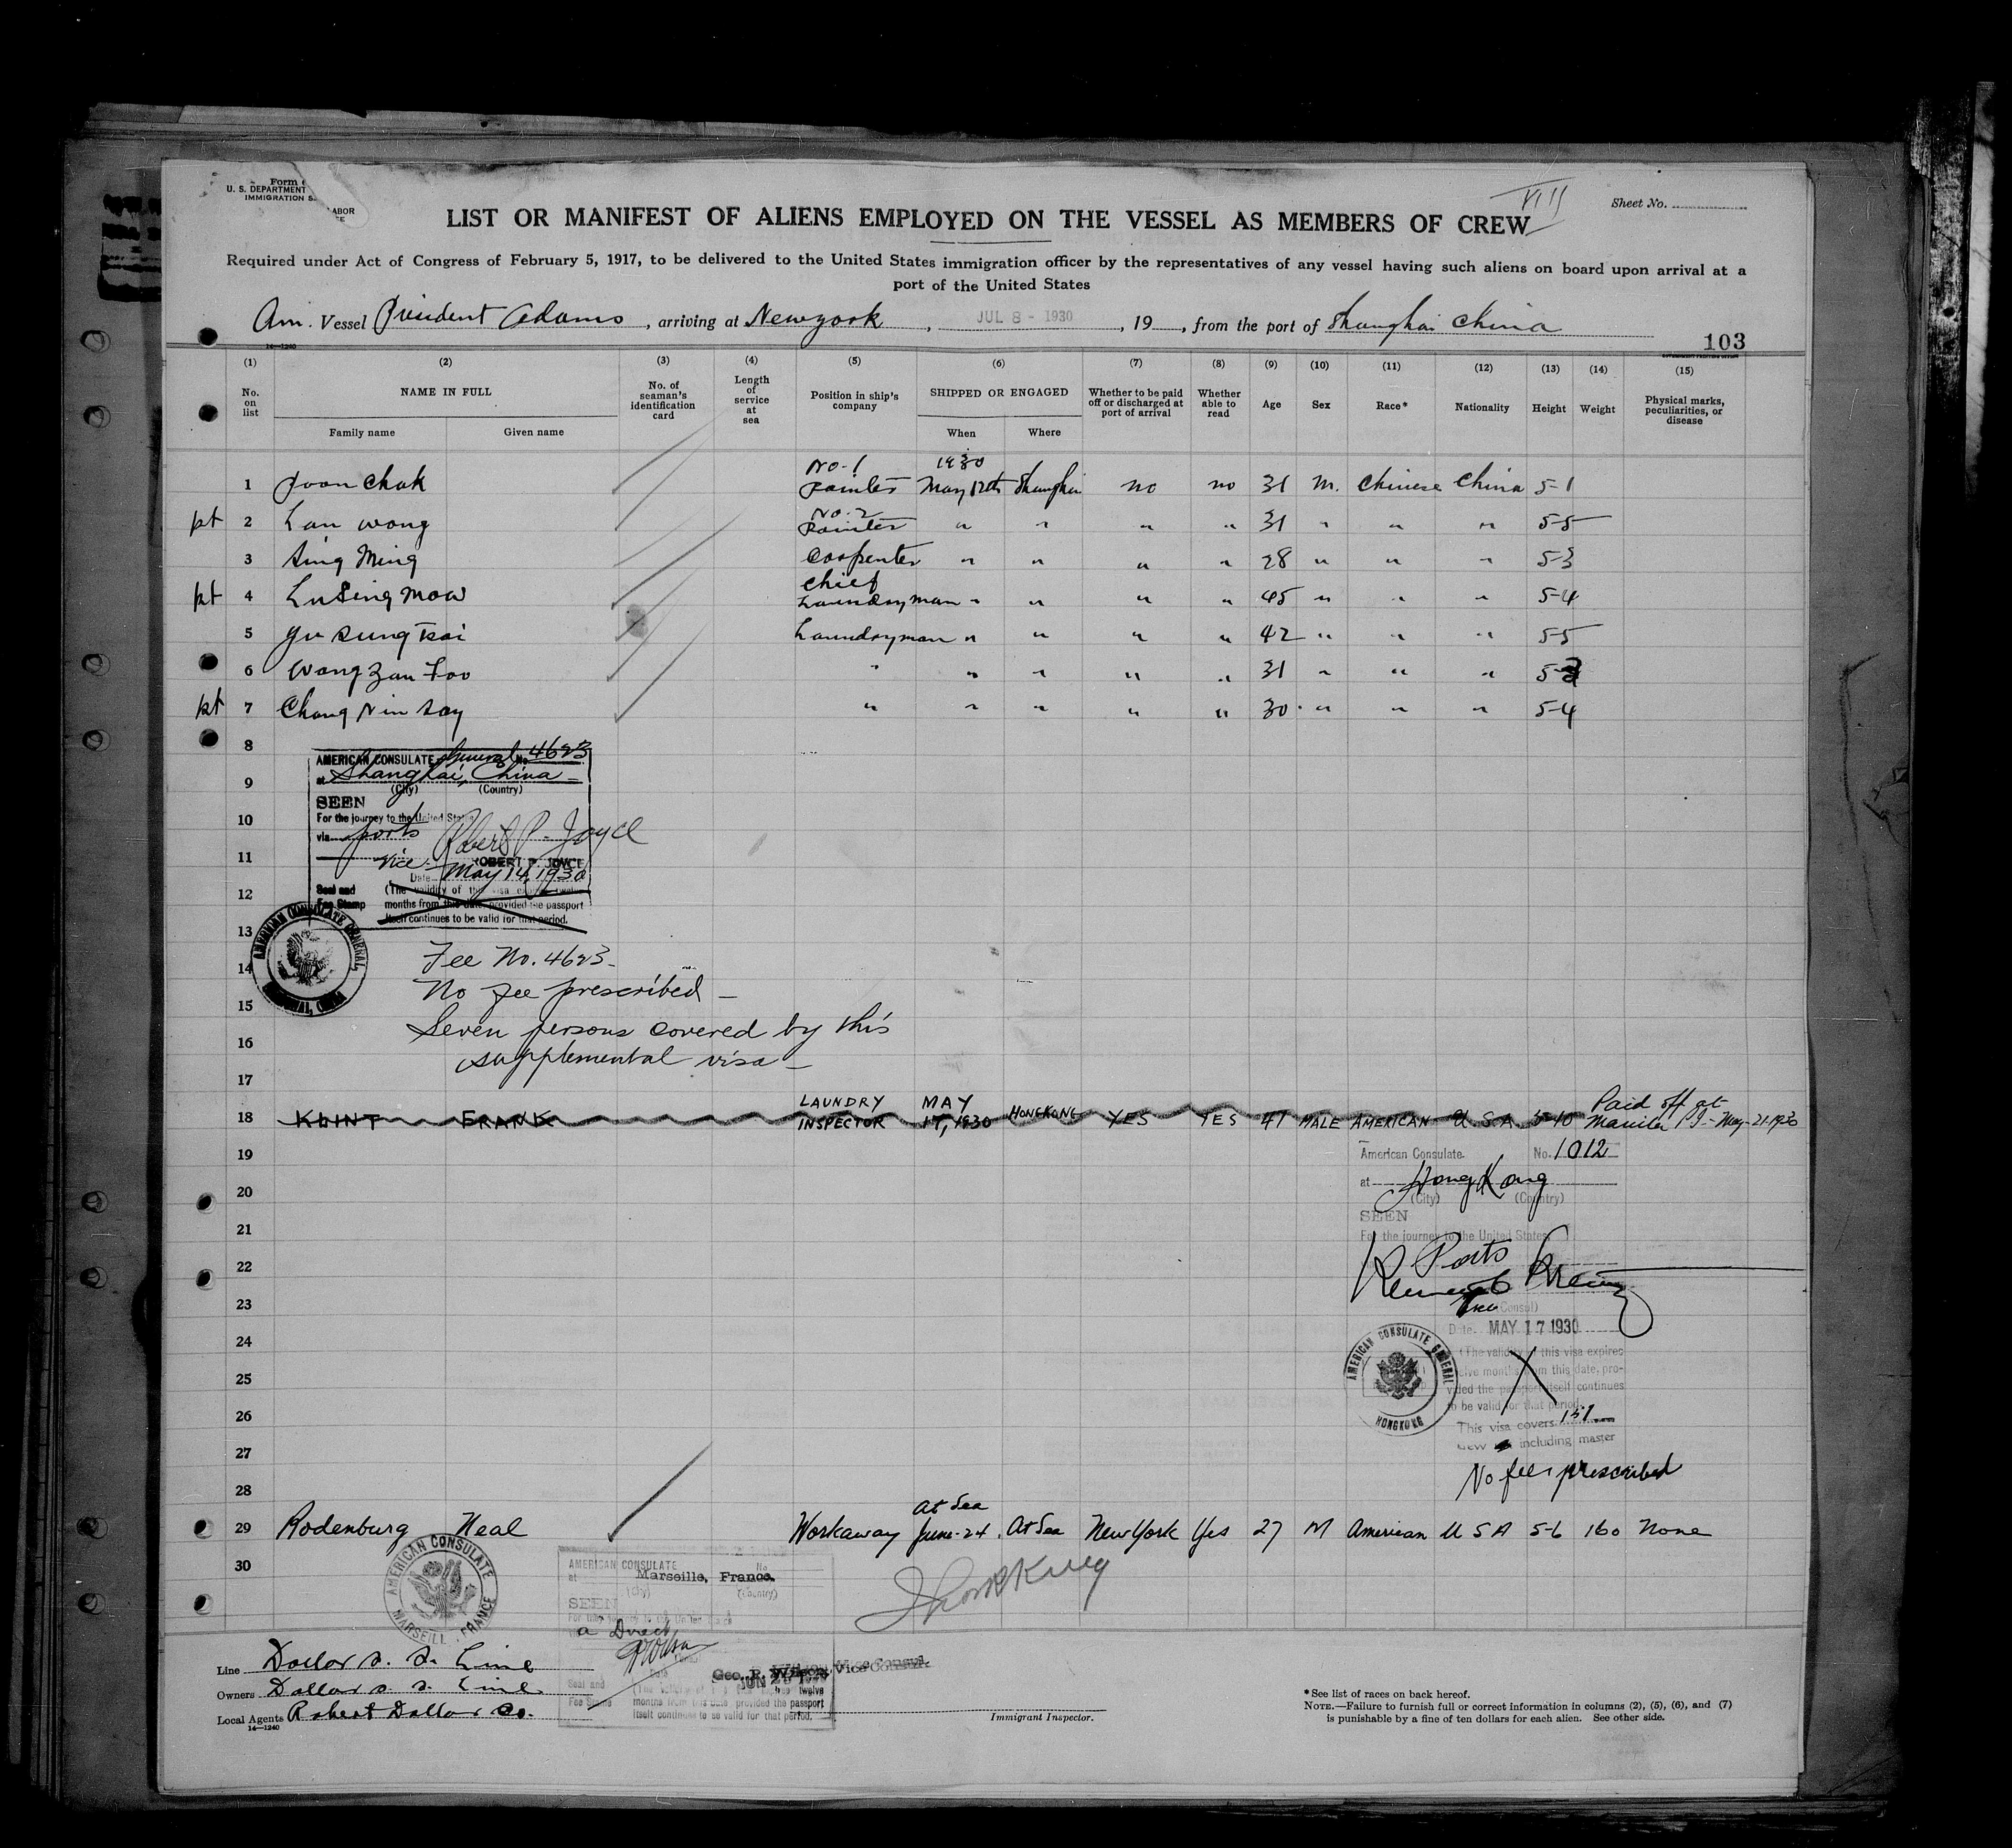 VIII
Form
U. S. DEPARTMENT LABOR
IMMIGRATION S
Sheet No.
LIST OR MANIFEST OF ALIENS EMPLOYED ON THE VESSEL AS MEMBERS OF CREW
Required under Act of Congress of February 5, 1917, to be delivered to the United States immigration officer by the representatives of any vessel having such aliens on board upon arrival at a
port of the United States
Am. Vessel President Adams, arriving at Newyork, JUL 8 - 1930, 19 , from the port of Shanghai China
14—1240
103
(1) (2) (3) (4) (5) (6) (7) (8) (9) (10) (11) (12) (13) (14) (15)
No. on list NAME IN FULL No. of seaman's identification card Length of service at sea Position in ship's company SHIPPED OR ENGAGED Whether to be paid off or discharged at port of arrival Whether able to read Age Sex Race* Nationality Height Weight Physical marks, peculiarities, or disease
Family name Given name When Where
No. 1 1930
1 Joon Chak Painter May 12th Shanghai no no 31 M. Chinese China 5-1
No. 2
pt 2 Lan Wong Painter " " " " 31 " " " 5-5
3 Sing Ming Carpenter " " " " 28 " " " 5-3
Chief
pt 4 Lu Sing Mow Laundryman " " " " 45 " " " 5-4
5 Yu Sung Tsai Laundryman " " " " 42 " " " 5-5
6 Wong Zan Foo " " " " " 31 " " "
pt 7 Chang Nin Say " " " " " 30 " " " 5-4
8
AMERICAN CONSULATE General No 4623
9
at Shanghai, China
(City) (Country)
SEEN
10
For the journey to the United States
via ports Robert P. Joyce
11
Vice ROBERT P. JOYCE
Date May 14, 1930
12
Seal and Fee Stamp (The validity of this visa expires
months from this date, provided the passport
itself continues to be valid for that period.
13
AMERICAN CONSULATE GENERAL
14
Fee No. 4623
No fee prescribed
15
Seven persons covered by this
16
supplemental visa
17
LAUNDRY MAY Paid off at
18 KLINT FRANK INSPECTOR 17, 1930 HONGKONG YES YES 41 MALE AMERICAN U.S.A. 5-10 Manila P.I. May-21-1930
19
American Consulate. No. 1012
20
at Hong Kong
(City) (Country)
21
SEEN
For the journey to the United States
22
Ports
23
(Consul)
24
Date. MAY 17 1930
(The validity of this visa expires
25
twelve months from this date, pro-
vided the passport itself continues
26
to be valid for that period.
This visa covers 151
27
crew including master
AMERICAN CONSULATE GENERAL
HONGKONG
No fee prescribed
28
At Sea
29 Rodenburg Neal Workaway June-24. At Sea New York Yes 27 M American U S A 5-6 160 None
30
AMERICAN CONSULATE
MARSEILL , FRANCE
AMERICAN CONSULATE No
at Marseille, France.
(City) (Country)
SEEN
For the journey to the United States
a Direct
Date
Geo. R. Wilson, Vice Consul.
Seal and Fee Stamp
months from this date provided the passport
itself continues to be valid for that period.
Line Dollar S. S. Line
Owners Dollar S. S. Line
Local Agents Robert Dollar Co.
14—1240
Immigrant Inspector.
*See list of races on back hereof.
NOTE.—Failure to furnish full or correct information in columns (2), (5), (6), and (7)
is punishable by a fine of ten dollars for each alien. See other side.